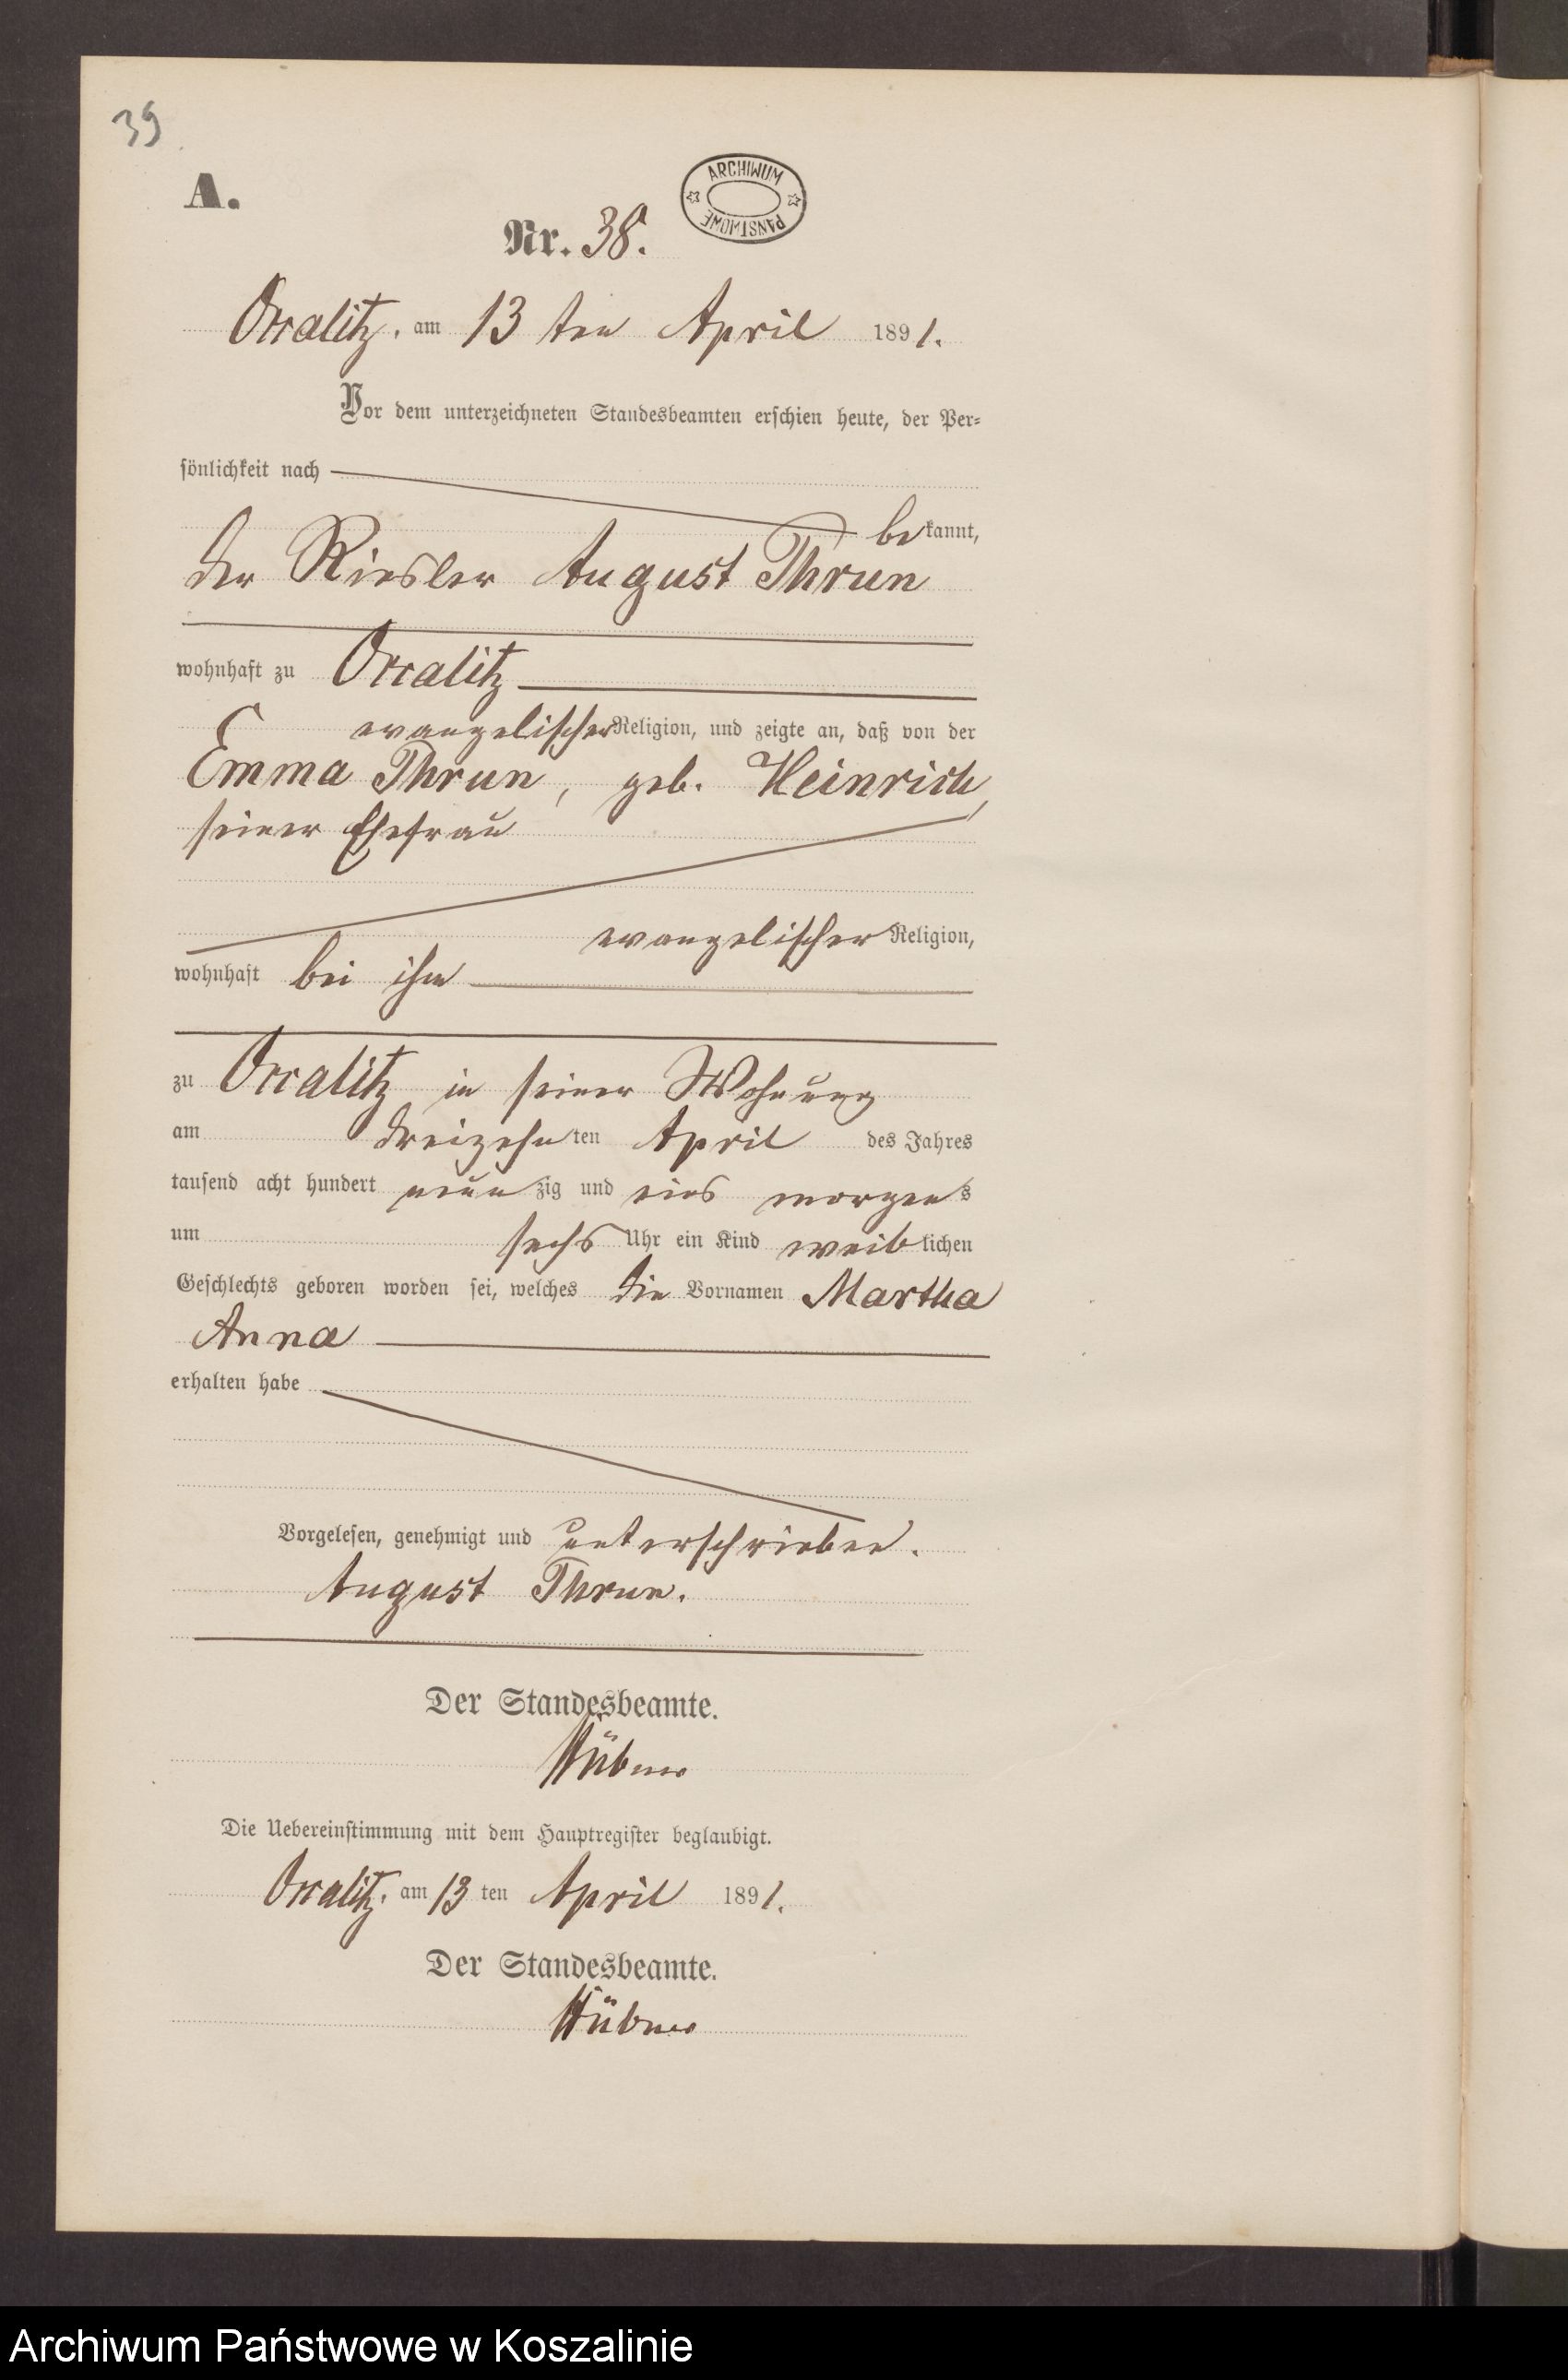 39
A.
ARCHIWUM PAŃSTWOWE
Nr. 38.
am 13 ten April 1891.
Vor dem unterzeichneten Standesbeamten erschien heute, der Per⸗
sönlichkeit nach
bekannt,
der August Thrun
wohnhaft zu
evangelischer Religion, und zeigte an, daß von der
Emma Thrun, geb. Heinrich,
seiner Ehefrau
evangelischer Religion,
wohnhaft bei ihm
zu in seiner Wohnung
am dreizehnten April des Jahres
tausend acht hundert neunzig und eins morgens
um sechs Uhr ein Kind weiblichen
Geschlechts geboren worden sei, welches die Vornamen Martha
Anna
erhalten habe
Vorgelesen, genehmigt und unterschrieben.
August Thrun.
Der Standesbeamte.
Hübner
Die Uebereinstimmung mit dem Hauptregister beglaubigt.
am 13 ten April 1891.
Der Standesbeamte.
Hübner
Archiwum Państwowe w Koszalinie